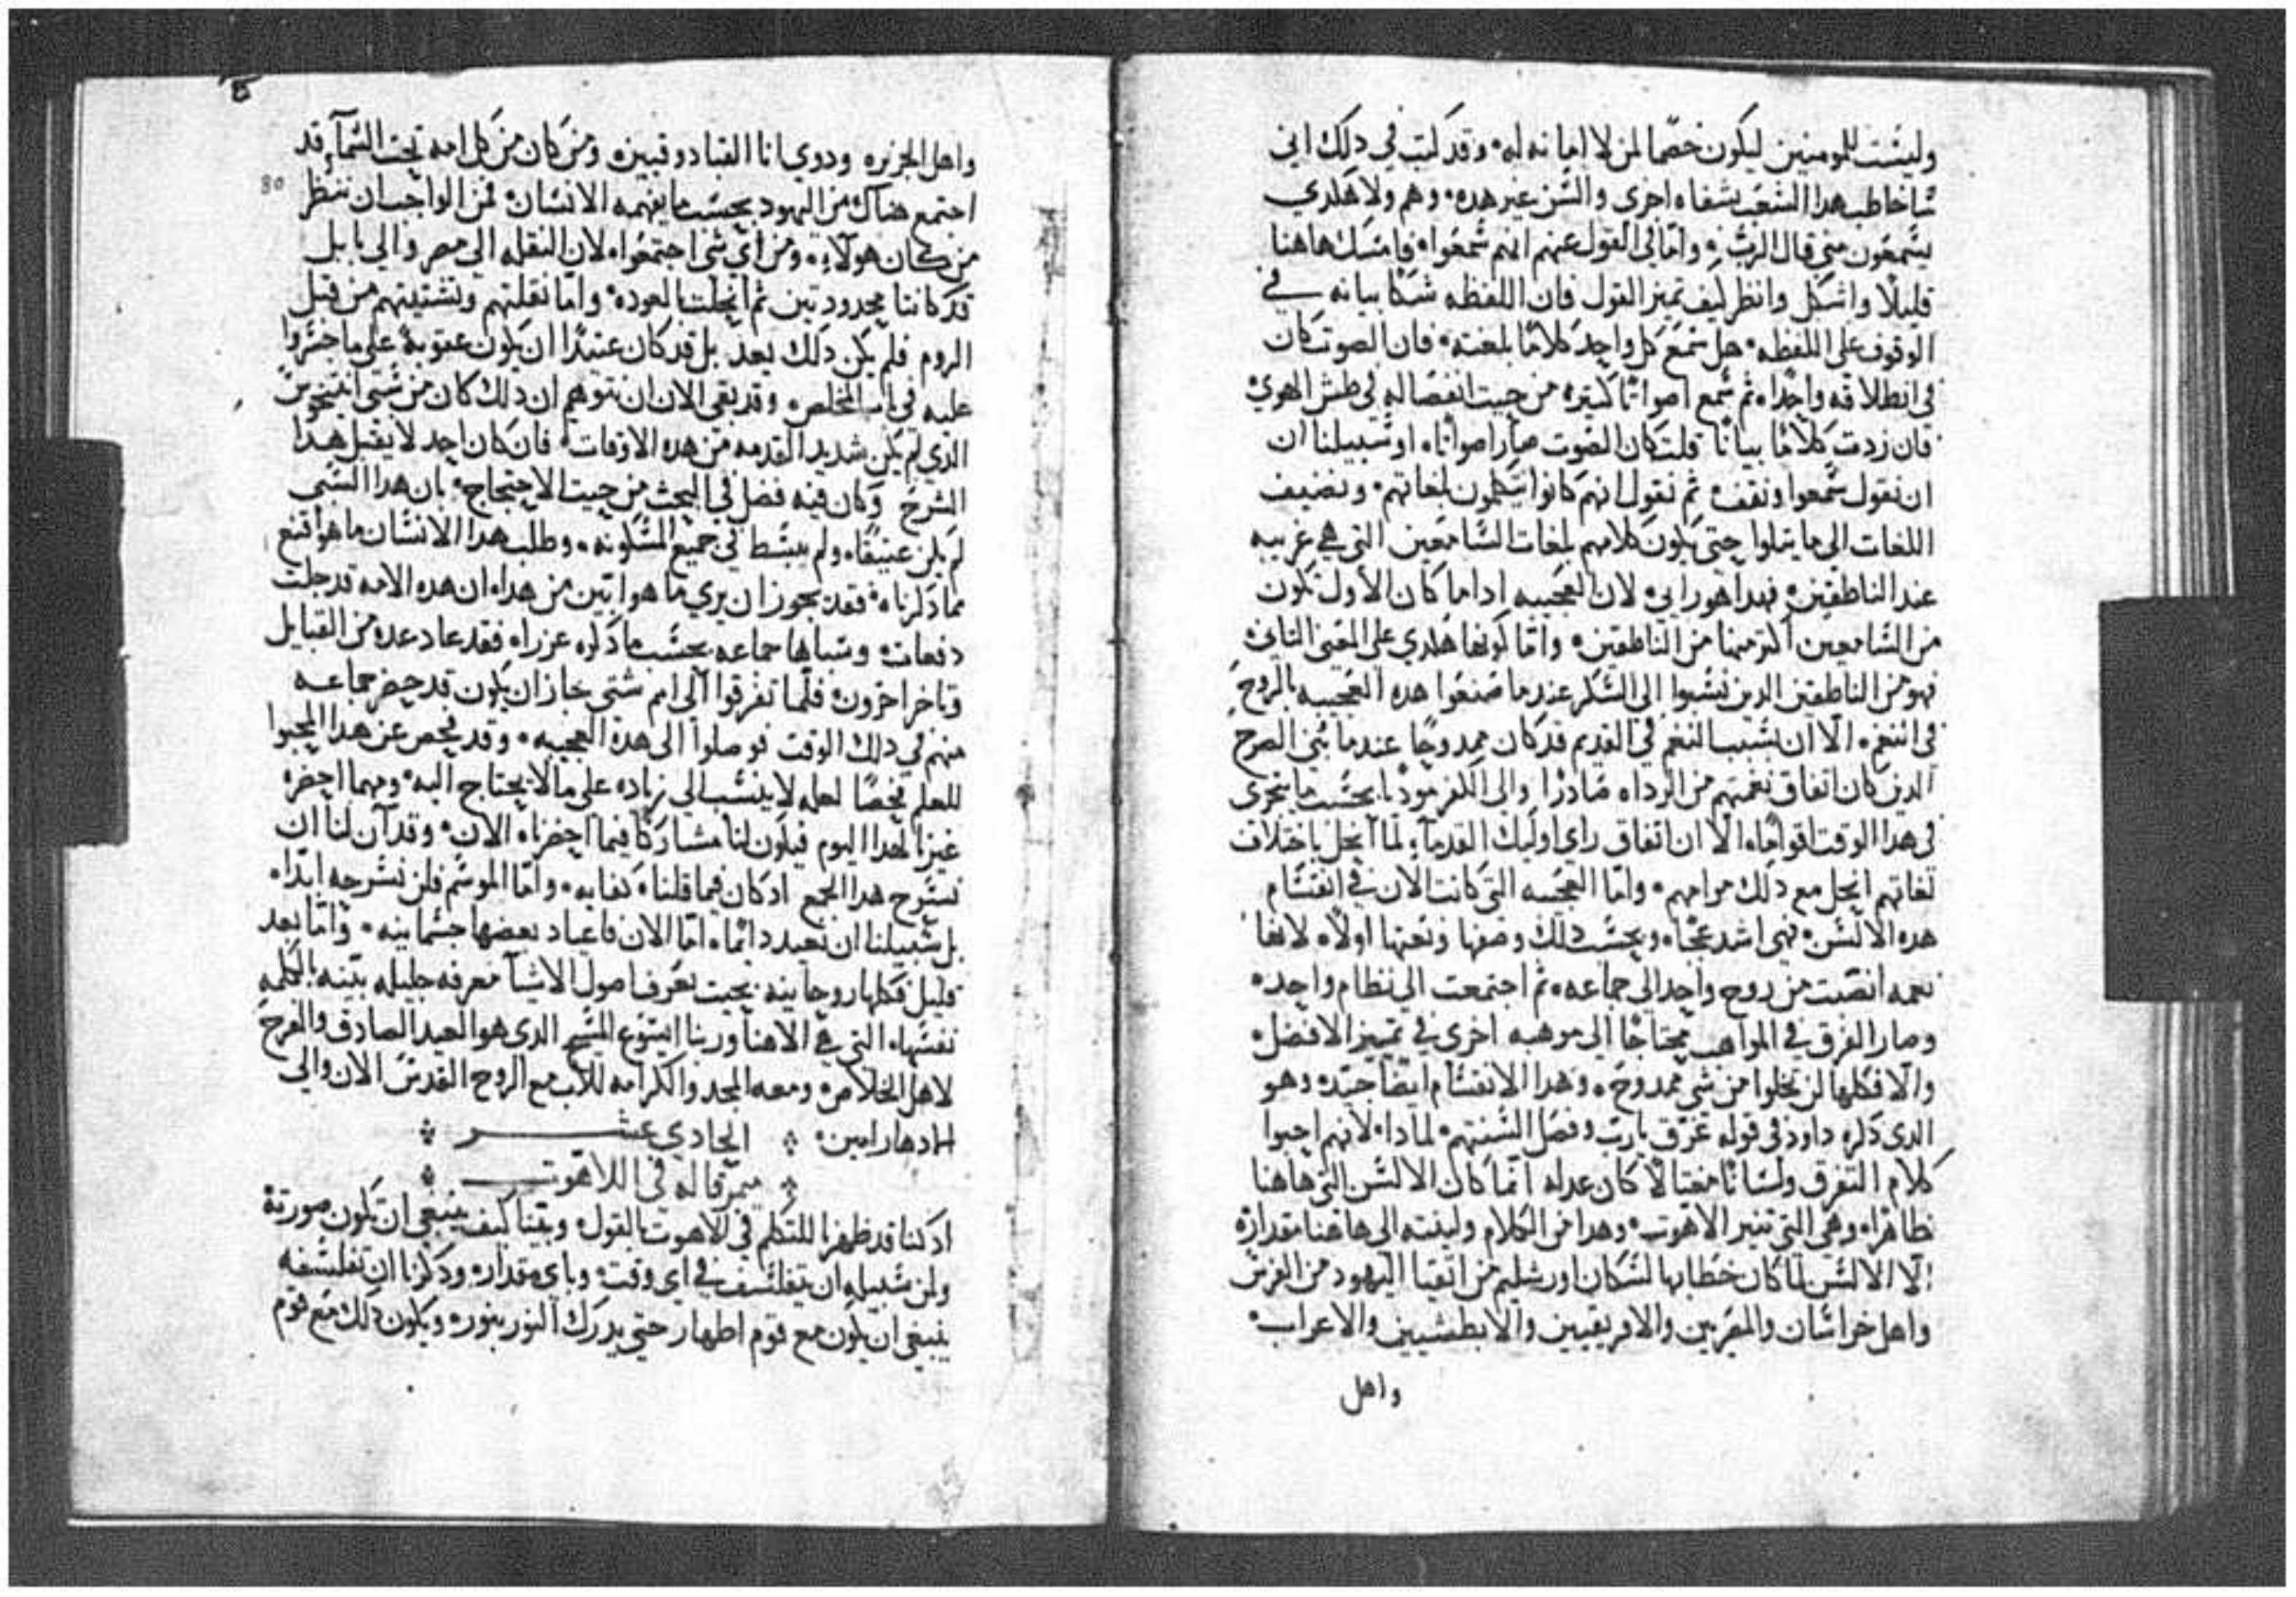 وليست للمومنين ليكون خصما لمن لا امانه له وقد كتب في دلك اني
ساخاطب هدا الشعب بشفاه اخرى والسن غير هده وهم ولا هكدي
يسمعون مني قال الرب واما لي القول عنهم انهم سمعوا فامسك هاهنا
قليلا واشكل وانظر كيف تميز القول فان اللفظه شكا بيانه في
الوقوف على اللفظه هل سمع كل واحد كلاما بلغته فان الصوت كان
في انطلاقه واحدا ثم سمع اصواتا كتيره من حيت انفصاله في طش الهوي
فان زدت كلاما بيانا قلت كان الصوت صار اصواتا او سبيلنا ان
ان نقول سمعوا ونقف ثم نقول انهم كانوا يتكلمون بلغاتهم ونضيف
اللغات الي ما يتلوا حتي يكون كلامهم بلغات السامعين التي هي غريبه
عند الناطقين فهدا هو رايي لان العجيبه اداما كان الاول تكون
من السامعين اكتر منها من الناطقين واما كونها هكدي على المعني التاني
فهو من الناطقين الدين نسبوا الي السكر عندما صنعوا هده العجيبه بالروح
في النغم الا ان تشبب النغم في القديم قد كان ممدوحا عندما بني الصرح
الدين كان اتفاق نغمتهم من الرداه صادرا والى الكفر مودبا بحسب ما يتحرى
في هدا الوقت اقواما الا ان اتفاق راي اوليك القدما لما انحل باختلاف
لغاتهم انحل مع دلك مرامهم واما العجيبه التي كانت الان في انقسام
هده الالسن فهي اشد عجبا وبحسب دلك وصفها ونعتها اولا لانها
نعمه انصبت من روح واحد الى جماعه ثم اجتمعت الي نظام واحد
وصار الفرق في المواهب محتاجا الي موهبه اخرى في تمييز الافضل
والا فكلها لن تخلوا من شي ممدوح وهدا الانقسام ايضا جيد وهو
الدى دكره داود في قوله غرق يارب وفصل السنتهم لمادا لانهم احبوا
كلام التغرق ولسانا مغتالا كان عدله انما كان الالسن التي هاهنا
ظاهرا وهي التي تنير الاهوت وهدا من الكلام ولينته الى هاهنا مقداره
الا الالسن لما كان خطابها لسكان اورشليم من اتقيا اليهود من الفرس
واهل خراسان والمصريين والافريقيين والابطشيين والاعراب
واهل
واهل الجزيره ودوي انا القبادوقيين ومن كان من كل امه تحت السما قد
80
اجتمع هناك من اليهود بحسب ما يفهمه الانسان فمن الواجب ان ننظر
من كان هولاء ومن اي شي اجتمعوا لان النقله الي مصر والي بابل
قد كانتا محدودتين ثم انحلت بالعوده واما نقلتهم وتشتيتهم من قبل
الروم فلم يكن دلك بعد بل قد كان عتيدا ان يكون عقوبة على ما جسروا
عليه في باب المخلص وقد بقي الان ان نتوهم ان دلك كان من سبي انتيخوس
الدي لم يكن شديد القدمه من هده الاوقات فان كان احد لا يقبل هدا
الشرح وكان فيه فضل في البحث من حيت الاحتجاج بان هدا السبي
لم يكن عتيقا ولم ينبسط في جميع المسكونه وطلب هدا الانسان ما هو اقنع
مما دكرناه فقد يجوز ان يري ما هو ابين من هدا ان هده الامه قد جلت
دفعات وسباها جماعه بحسب ما دكره عزرا فقد عاد عده من القبايل
وتاخر اخرون فلما تفرقوا الي امم شتي جاز ان يكون قد حضر جماعه
منهم في دلك الوقت فوصلوا الى هده العجيبه وقد فحص عن هدا المحبوا
للعلم فحصا لعله لا ينسب الي زياده على ما لا يحتاج اليه ومهما احضره
غيرنا لهدا اليوم فيكون لنا مشاركا فيما احضرناه الان وقد آن لنا ان
نسرح هدا الجمع ادكان فيما قلناه كفايه واما الموسم فلن نسرحه ابدا
بل سبيلنا ان نعيد دائما اما الان فاعياد بعضها جسمانيه واما بعد
قليل فكلها روحانيه بحيت نعرف اصول الاشيا معرفه جليله بينه بالكلمه
نفسها التي هي الاهنا وربنا ايسوع المسيح الدى هو العيد الصادق والفرح
لاهل الخلاص ومعه المجد والكرامه للاب مع الروح القدس الان والي
الادهار امين الحادي عشر
ميمر قاله في اللاهوت
ادكنا قد ظهرنا للتكلم في اللاهوت بالقول وبينا كيف ينبغي ان تكون صورته
ولمن سبيله ان يتفلسف في اي وقت وباي مقدار ودكرنا ان تفلسفه
ينبغي ان يكون مع قوم اطهار حتي يدرك النور بنوره ويكون دلك مع قوم